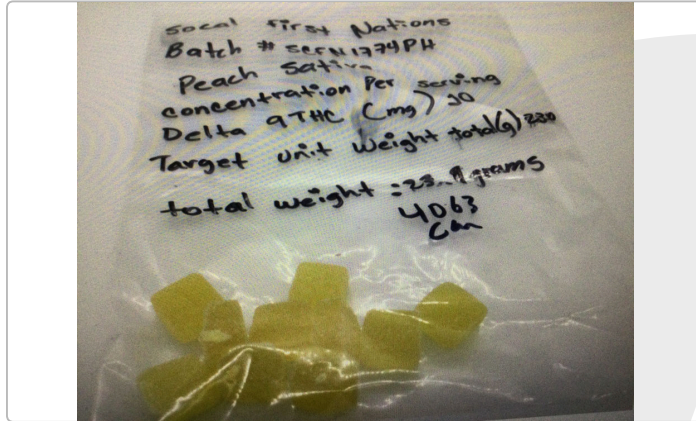 Socal First Nations
Batch # SCFN1774PH
Peach Sativa
concentration Per serving
Delta 9THC (mg) 20
Target unit Weight total(g)
total weight : grams
4063
Can